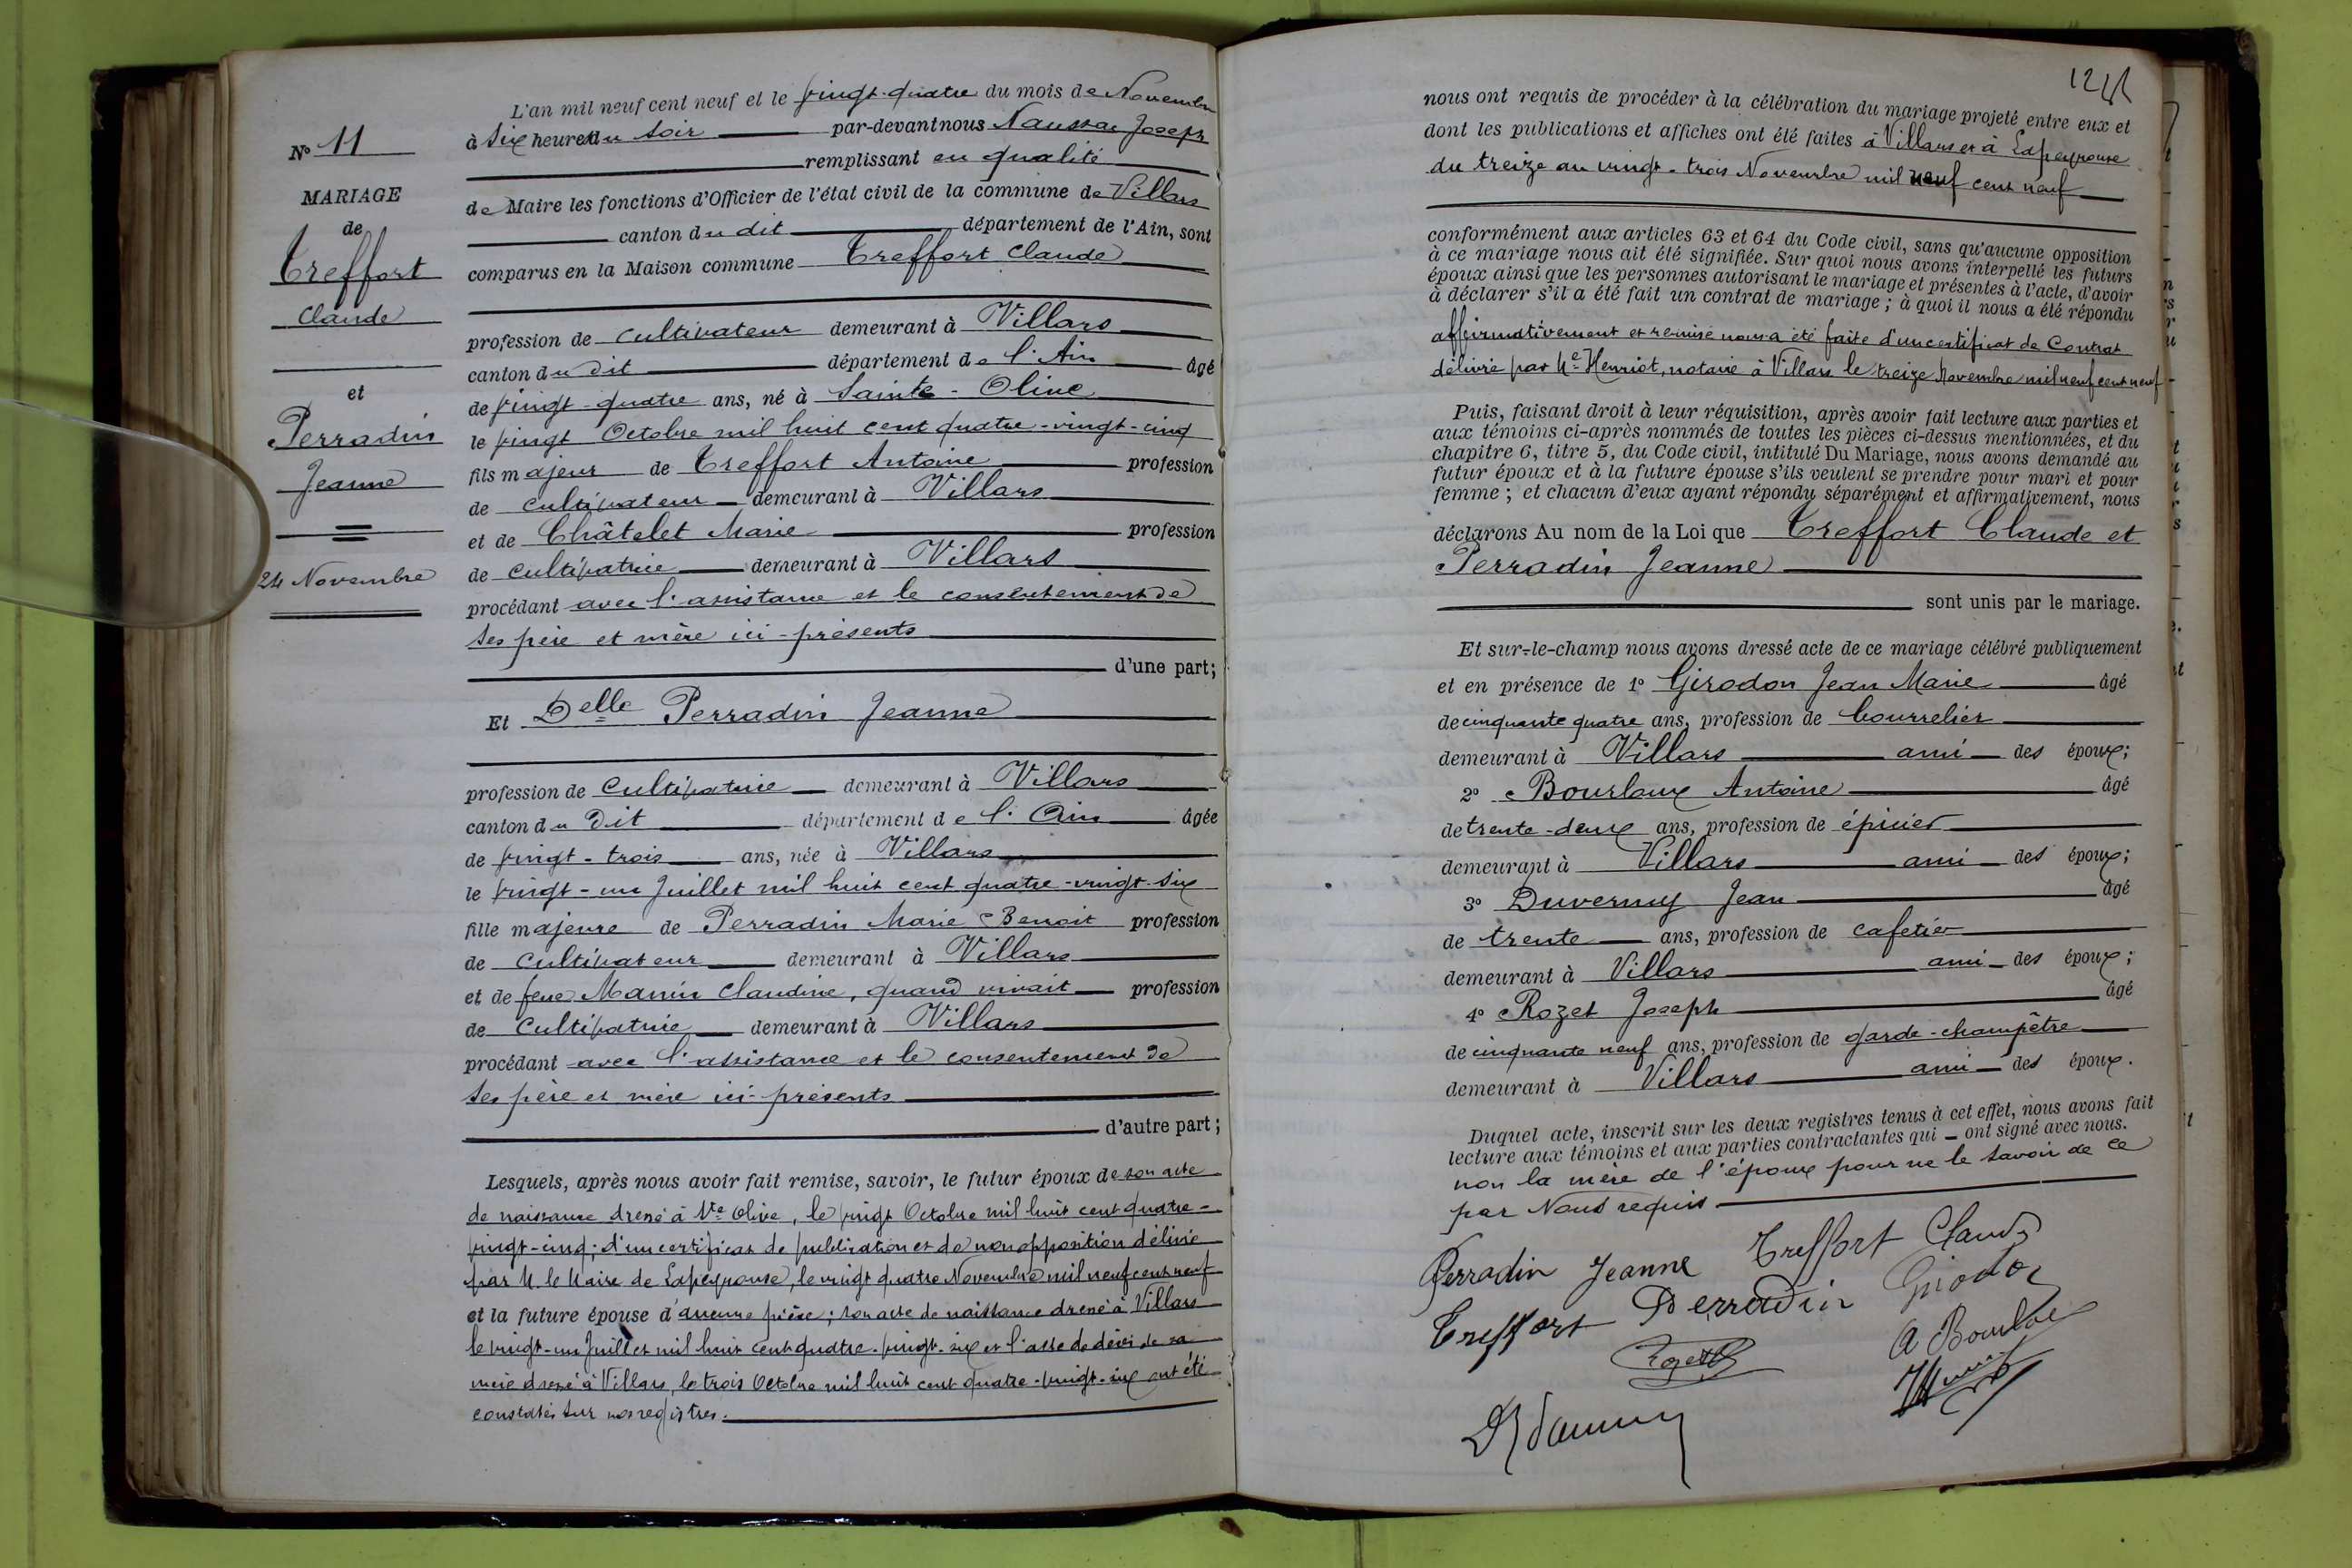 L'an mil neuf cent neuf et le vingt-quatre du mois de Novembre
à Six heures du soir par-devant nous Naussac Joseph
remplissant en qualité
de Maire les fonctions d'Officier de l'état civil de la commune de Villars
canton du dit département de l'Ain, sont
comparus en la Maison commune Treffort Claude
profession de cultivateur demeurant à Villars
canton du dit département de l'Ain âgé
de vingt-quatre ans, né à Sainte-Olive
le vingt Octobre mil huit cent quatre-vingt-cinq
fils majeur de Treffort Antoine profession
de cultivateur demeurant à Villars
et de Châtelet Marie profession
de cultivatrice demeurant à Villars
procédant avec l'assistance et le consentement de
ses père et mère ici-présents
d'une part;
Et Delle Perradin Jeanne
profession de Cultivatrice demeurant à Villars
canton du dit département de l'Ain âgée
de vingt-trois ans, née à Villars
le vingt-un Juillet mil huit cent quatre-vingt-six
fille majeure de Perradin Marie Benoit profession
de cultivateur demeurant à Villars
et de feue Manin Claudine, quand vivait profession
de Cultivatrice demeurant à Villars
procédant avec l'assistance et le consentement de
ses père et mère ici-présents
d'autre part;
Lesquels, après nous avoir fait remise, savoir, le futur époux de son acte
de naissance dressé à Ste Olive, le vingt Octobre mil huit cent quatre-
vingt-cinq; d'un certificat de publication et de non opposition délivré
par M. le Maire de Lapeyrouse, le vingt quatre Novembre mil neuf cent neuf
et la future épouse d'aucune pièce; son acte de naissance dressé à Villars
le vingt-un Juillet mil huit cent quatre-vingt-six et l'acte de décès de sa
mère dressé à Villars, le trois Octobre mil huit cent quatre-vingt-six ont été
constatés sur nos registres.
No 11
MARIAGE
de
Treffort
Claude
et
Perradin
Jeanne
24 Novembre
nous ont requis de procéder à la célébration du mariage projeté entre eux et
dont les publications et affiches ont été faites à Villars et à Lapeyrouse
du treize au vingt-trois Novembre mil neuf cent neuf
conformément aux articles 63 et 64 du Code civil, sans qu'aucune opposition
à ce mariage nous ait été signifiée. Sur quoi nous avons interpellé les futurs
époux ainsi que les personnes autorisant le mariage et présentes à l'acte, d'avoir
à déclarer s'il a été fait un contrat de mariage; à quoi il nous a été répondu
affirmativement et remise nous a été faite d'un certificat de Contrat
délivré par Me Henriot, notaire à Villars le treize Novembre mil neuf cent neuf
Puis, faisant droit à leur réquisition, après avoir fait lecture aux parties et
aux témoins ci-après nommés de toutes les pièces ci-dessus mentionnées, et du
chapitre 6, titre 5, du Code civil, intitulé Du Mariage, nous avons demandé au
futur époux et à la future épouse s'ils veulent se prendre pour mari et pour
femme; et chacun d'eux ayant répondu séparément et affirmativement, nous
déclarons Au nom de la Loi que Treffort Claude et
Perradin Jeanne
sont unis par le mariage.
Et sur-le-champ nous avons dressé acte de ce mariage célébré publiquement
et en présence de 1o Girodon Jean Marie âgé
de cinquante quatre ans, profession de bourrelier
demeurant à Villars ami des époux;
2o Bourloux Antoine âgé
de trente-deux ans, profession de épicier
demeurant à Villars ami des époux;
3o Duvernay Jean âgé
de trente ans, profession de cafetier
demeurant à Villars ami des époux;
4o Rozet Joseph âgé
de cinquante neuf ans, profession de garde-champêtre
demeurant à Villars ami des époux.
Duquel acte, inscrit sur les deux registres tenus à cet effet, nous avons fait
lecture aux témoins et aux parties contractantes qui ont signé avec nous.
non la mère de l'époux pour ne le savoir de ce
par Nous requis
Perradin Jeanne Treffort Claude
Treffort Perradin Girodon
Rozet A Bourloux